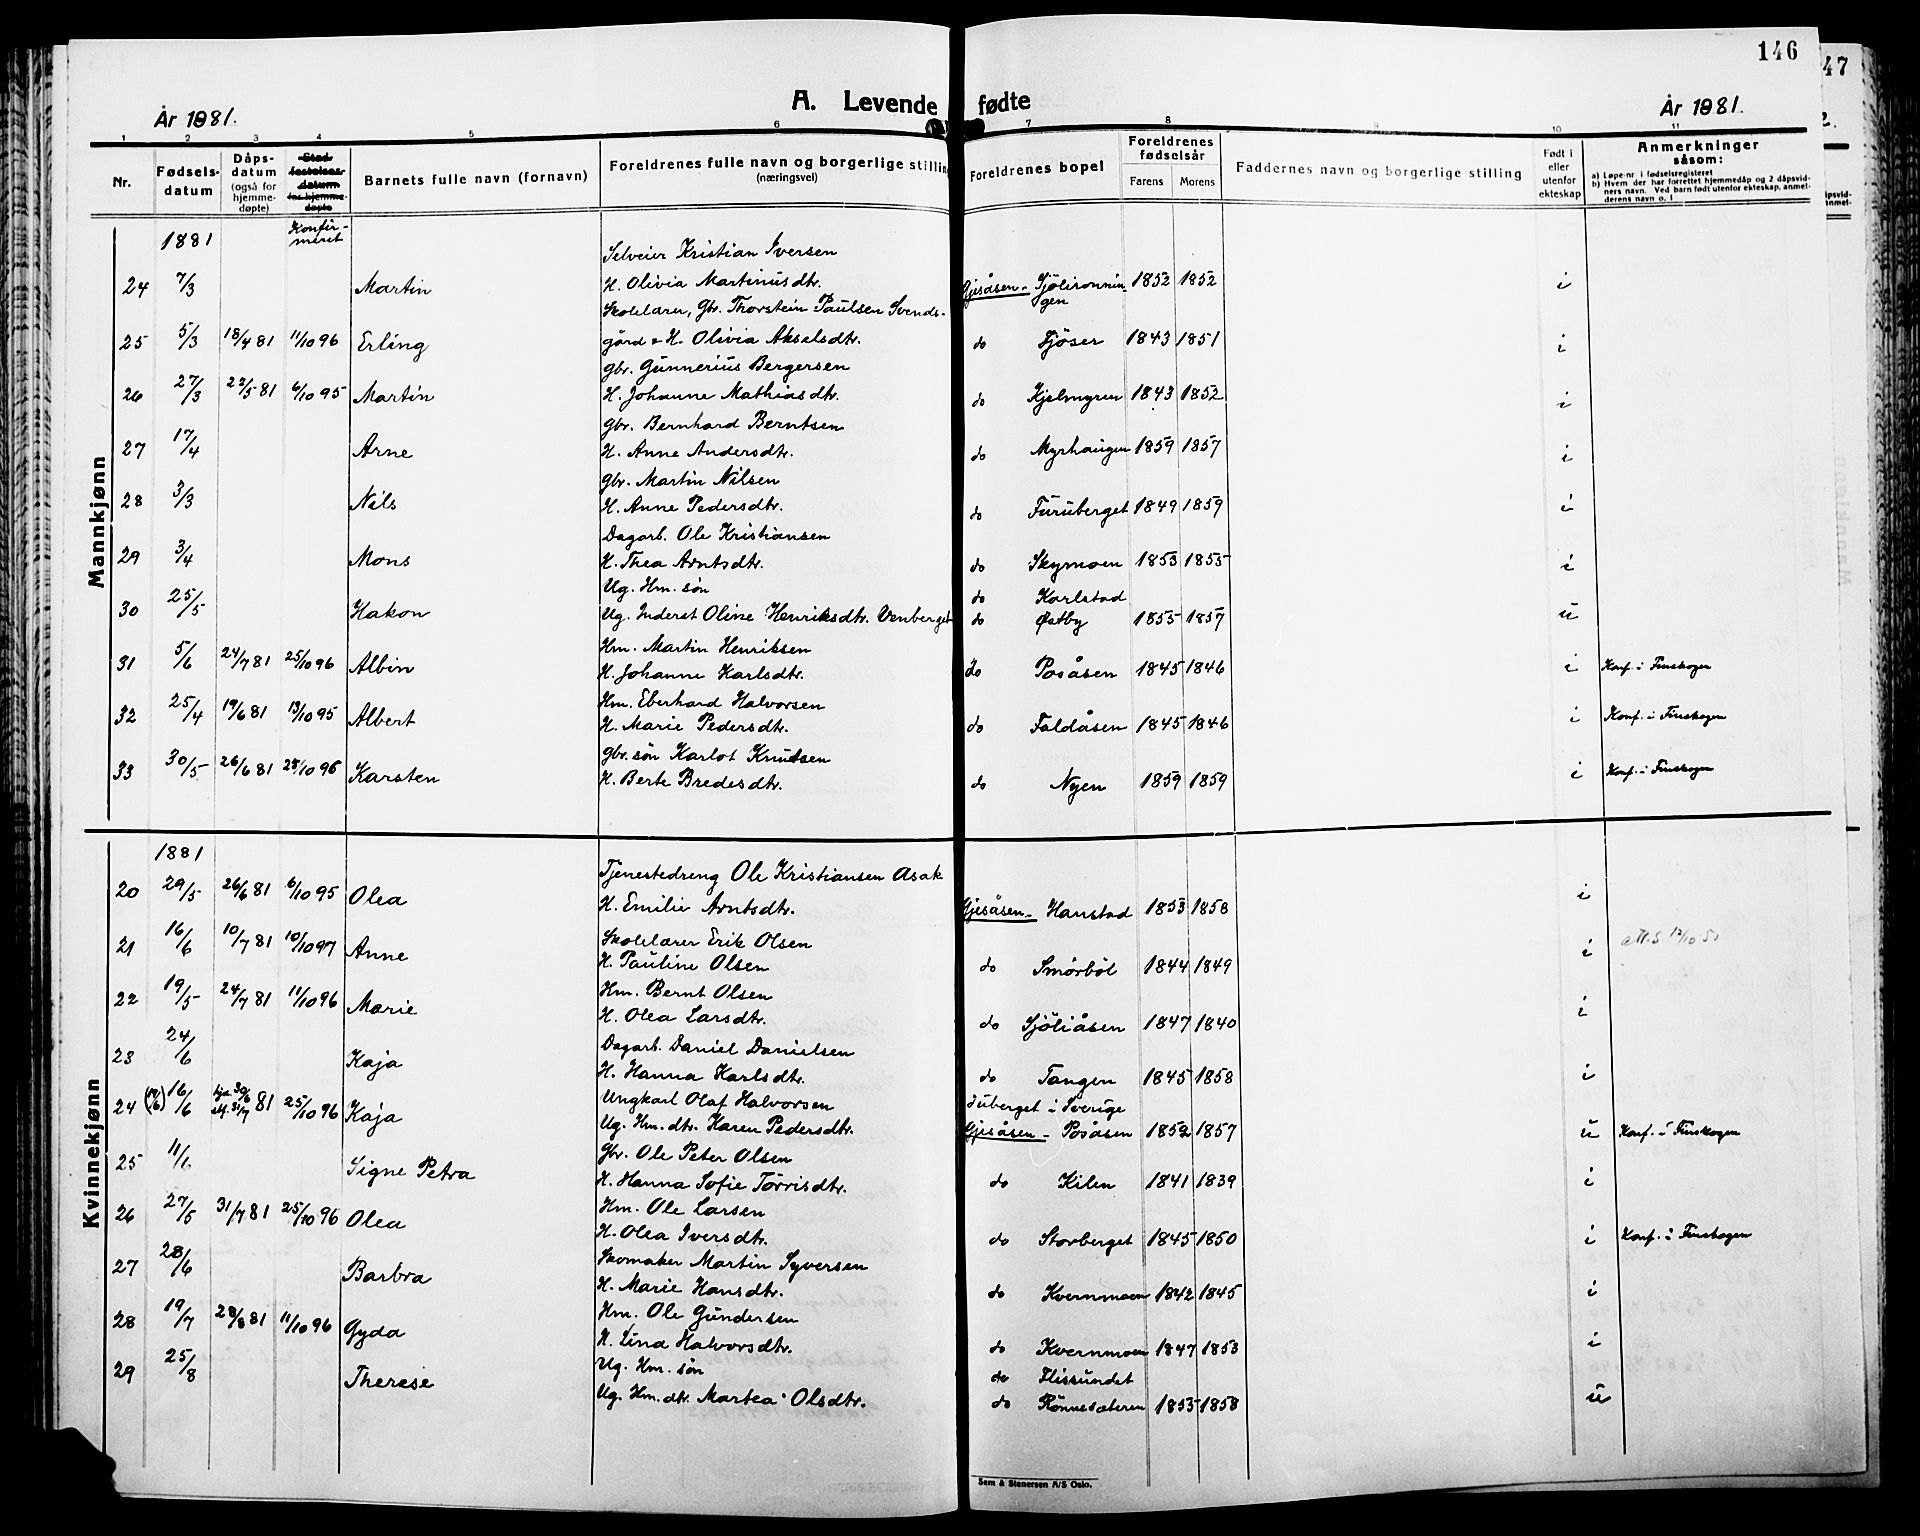 146
47
A. Levende fødte
År 1881.
År 1881.
2.
1 2 3 4 5 6 7 8 9 10 11
Nr. Fødsels-datum Dåps-datum (også for hjemme-døpte) Stad-festelses-datum for hjemme-døpte Barnets fulle navn (fornavn) Foreldrenes fulle navn og borgerlige stilling (næringsvei) Foreldrenes bopel Foreldrenes fødselsår Farens Morens Faddernes navn og borgerlige stilling Født i eller utenfor ekteskap Anmerkninger såsom:
a) Løpe-nr i fødselsregisteret
b) Hvem der har forrettet hjemmedåp og 2 dåpsvid-
ners navn. Ved barn født utenfor ekteskap, anmel-
derens navn o. l
Konfir-
meret
Mannkjønn
1881 Selveier Kristian Iversen
24 7/3 Martin H. Olivia Martinusdtr. Gjesåsen - Sjölirönnin-gen 1852 1852 i
Skolelærer, Gbr. Thorstein Paulsen Svends-
25 5/3 18/4 81 11/10 96 Erling gård & H. Olivia Akselsdtr. do Sjöser 1843 1851 i
Gbr. Gunnerius Bergersen
26 27/3 22/5 81 6/10 95 Martin H. Johanne Mathiasdtr. do Kjelmyren 1843 1852 i
Gbr. Bernhard Berntsen
27 17/4 Arne H. Anne Andersdtr. do Myrhaugen 1859 1857 i
Gbr. Martin Nilsen
28 3/3 Nils H. Anne Pedersdtr. do Furuberget 1849 1859 i
Dagarb. Ole Kristiansen
29 3/4 Mons H. Thea Arntsdtr. do Skymoen 1853 1855 i
Ug. Hm. søn do Karlstad
30 25/5 Hakon Ug. Inderst Oline Henriksdtr. Venberget do Østby 1855 1857 u
Hm. Martin Henriksen
31 5/6 24/7 81 25/10 96 Albin H. Johanne Karlsdtr. do Posåsen 1845 1846 i Konf. i Finskogen
Hm. Eberhard Halvorsen
32 25/4 19/6 81 13/10 95 Albert H. Marie Pedersdtr. do Faldåsen 1845 1846 i Konf. i Finskogen
Gbr. søn Karlot Knudsen
33 30/5 26/6 81 Karsten H. Berte Bredesdtr. do Nyen 1859 1859 i Konf. i Finskogen
Kvinnekjønn
1881 Tjenestedreng Ole Kristiansen Asak
20 29/5 26/6 81 6/10 95 Olea H. Emilie Arntsdtr. Gjesåsen - Hanstad 1853 1858 i
Skolelærer Erik Olsen
21 16/6 10/7 81 10/10 97 Anne H. Pauline Olsen do Smörböl 1844 1849 i
Hm. Bernt Olsen
22 19/5 24/7 81 11/10 96 Marie H. Olea Larsdtr. do Sjöliåsen 1847 1840 i
Dagarb. Daniel Danielsen
23 24/6 Kaja H. Hanna Karlsdtr. do Tangen 1845 1858 i
Ungkarl Olaf Halvorsen Juberget i Sverige
24 16/6 hje. 30/6 stf. 31/7 81 25/10 96 Kaja Ug. Hm. dtr. Karen Pedersdtr. Gjesåsen - Posåsen 1852 1857 u Konf. i Finskogen
Gbr. Ole Peter Olsen
25 11/6 Signe Petra H. Hanna Sofie Törrisdtr. do Kilen 1841 1839 i
Hm. Ole Larsen
26 27/5 31/7 81 25/10 96 Olea H. Olea Iversdtr. do Storberget 1845 1850 i Konf. i Finskogen
Skomaker Martin Syversen
27 28/6 Barbra H. Marie Hansdtr. do Kvernmoen 1842 1845 i
Hm. Ole Gundersen
28 19/7 28/8 81 11/10 96 Gyda H. Lina Halvorsdtr. do Kvernmoen 1847 1853 i
Ug. Hm. søn do Flissundet
29 25/8 Therese Ug. Hm. dtr. Martea Olsdtr. do Rönnesæteren 1855 1858 u
Sem & Stenersen A/S Oslo.